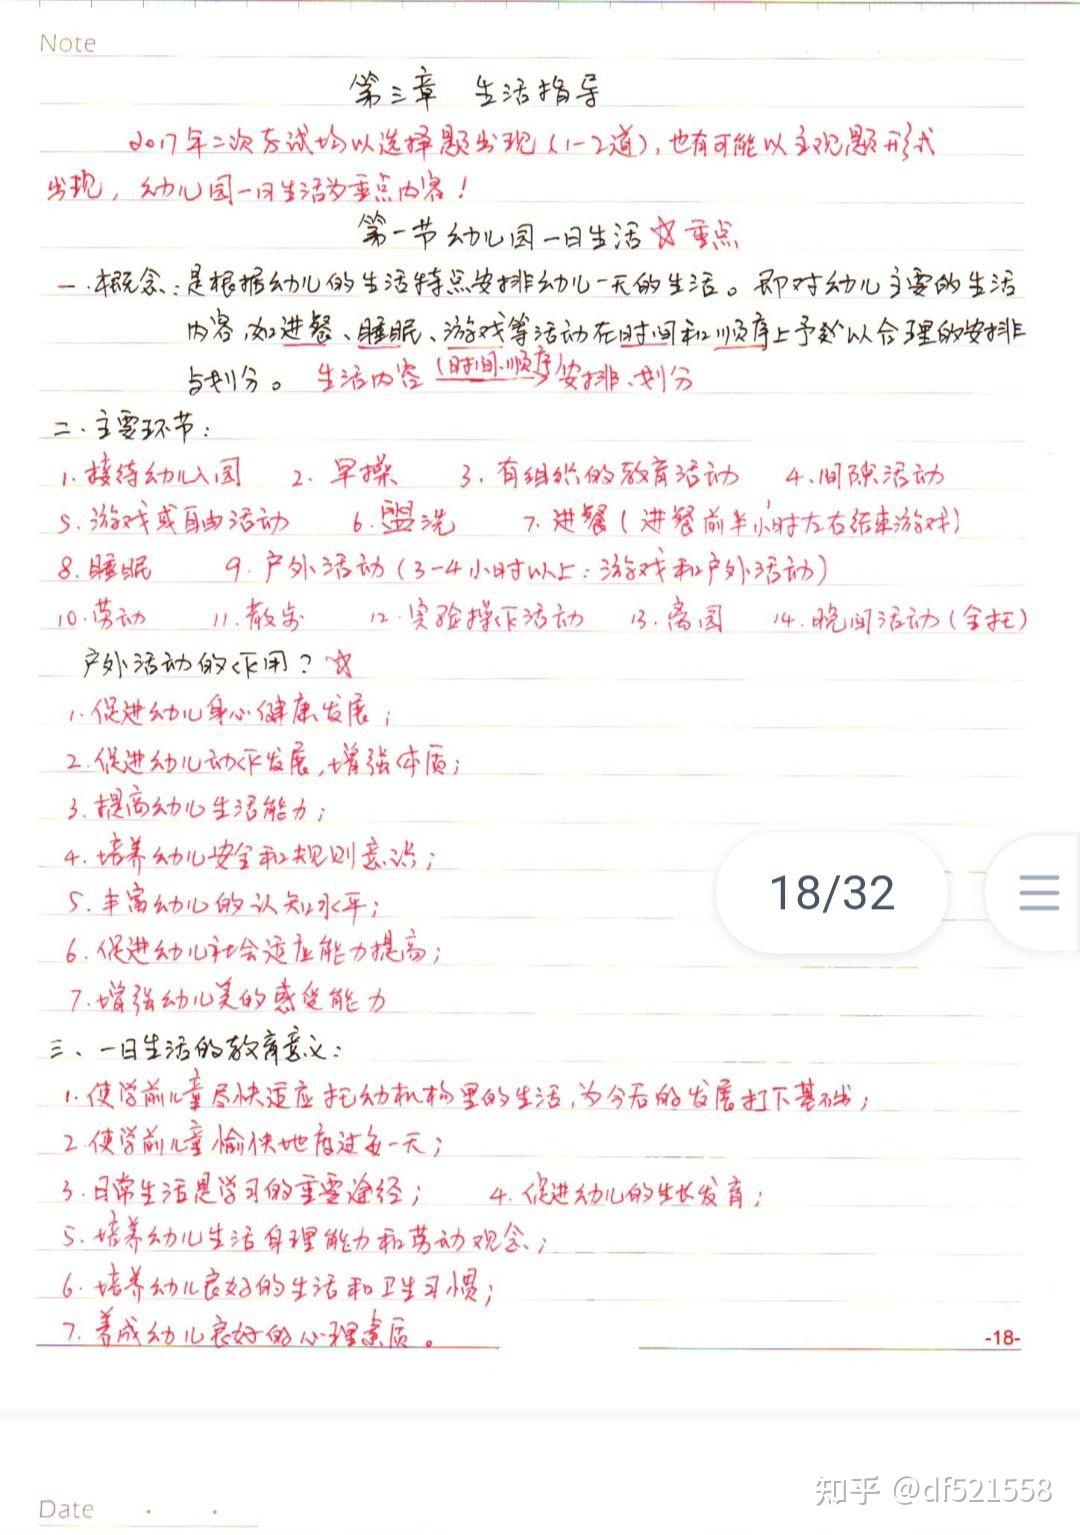 Note
第三章 生活指导
2017年二次考试均以选择题出现(1-2道),也有可能以主观题形式
出现,幼儿园一日生活为重点内容!
第一节幼儿园一日生活☆重点
一.概念:是根据幼儿的生活特点安排幼儿一天的生活。即对幼儿主要的生活
内容,如进餐、睡眠、游戏等活动在时间和顺序上予以合理的安排
与划分。 生活内容(时间、顺序)安排、划分
二.主要环节:
1.接待幼儿入园 2.早操 3.有组织的教育活动 4.间隙活动
5.游戏或自由活动 6.盥洗 7.进餐(进餐前半小时左右结束游戏)
8.睡眠 9.户外活动(3-4小时以上:游戏和户外活动)
10.劳动 11.散步 12.实验操作活动 13.离园 14.晚间活动(全托)
户外活动的作用?☆
1.促进幼儿身心健康发展;
2.促进幼儿动作发展,增强体质;
3.提高幼儿生活能力;
4.培养幼儿安全和规则意识;
5.丰富幼儿的认知水平;
6.促进幼儿社会适应能力提高;
7.增强幼儿美的感受能力
三、一日生活的教育意义:
1.使学前儿童尽快适应托幼机构里的生活,为今后的发展打下基础;
2.使学前儿童愉快地度过每一天;
3.日常生活是学习的重要途径; 4.促进幼儿的生长发育;
5.培养幼儿生活自理能力和劳动观念;
6.培养幼儿良好的生活和卫生习惯;
7.养成幼儿良好的心理素质。
18/32
-18-
Date
知乎 @df521558